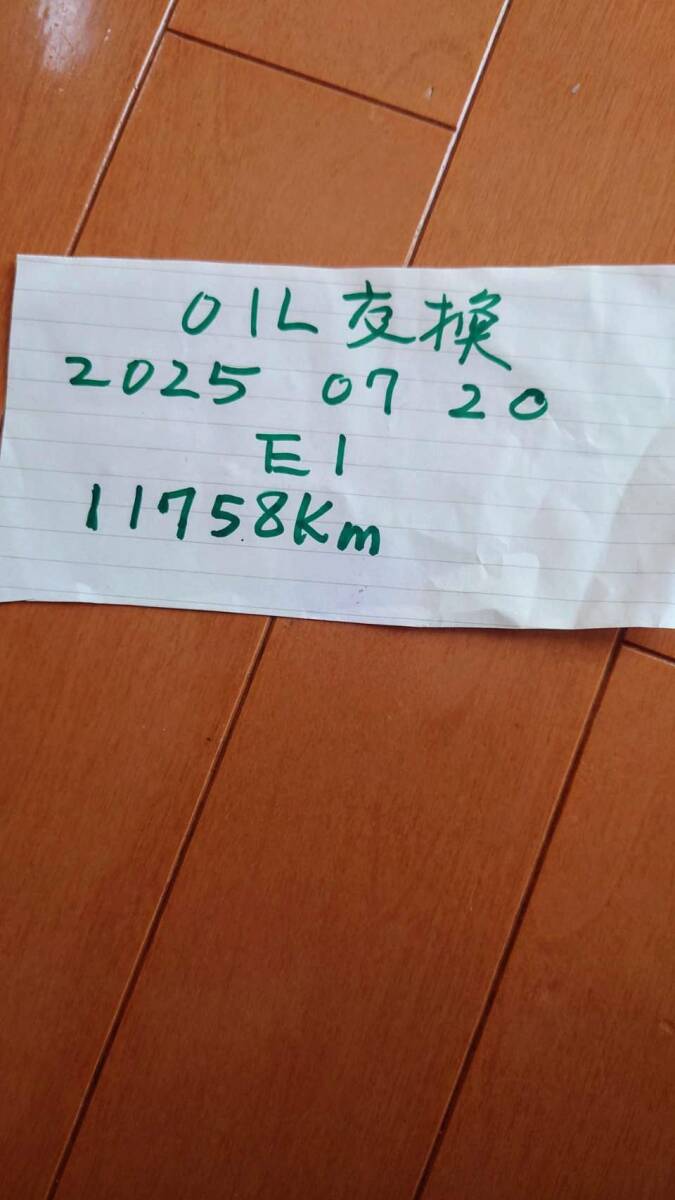 OIL 交換
2025 07 20
E1
11758Km